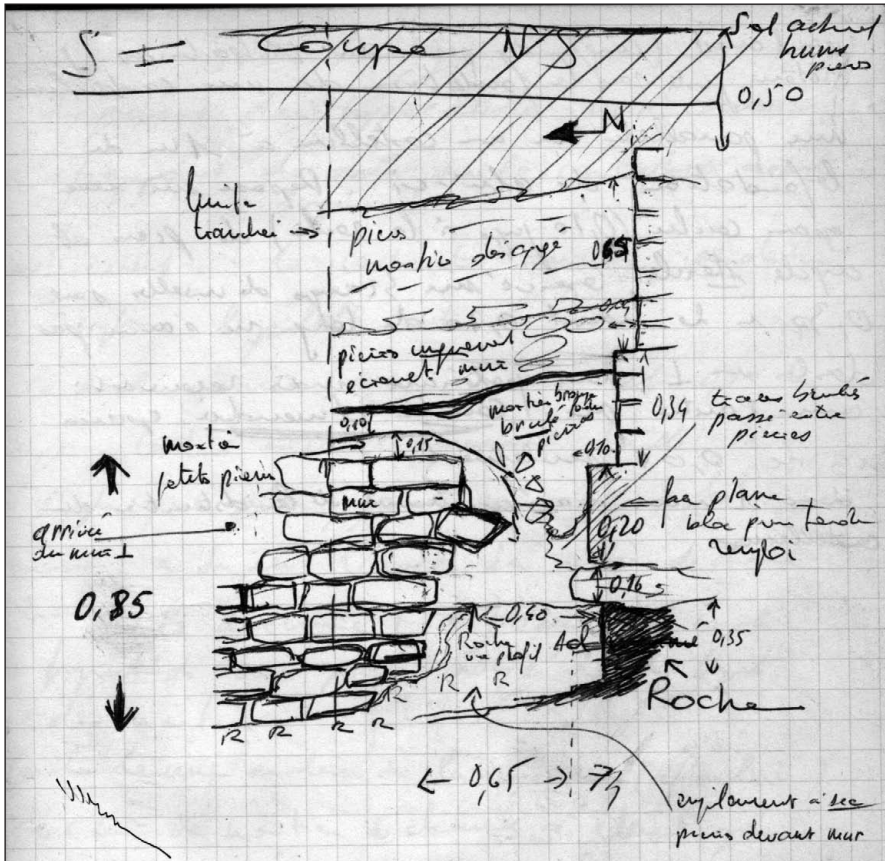 S = Coupe N S
Sol actuel
humus
pierres
0,50
N
limite
tranchée →
pierres
mortier décapage
0,65
pierres
écrouet mur
0,34
traces brulés
passé entre
pierres
mortier brun
brulé
pierres
0,10
0,15
0,10
mortier
petits pierres
mur
arrivée
du mur ⊥
0,85
face plane
bloc pierre tendre
remploi
0,20
0,16
0,40
Roche
vue profil
0,35
Roche
R R
R R R R
← 0,65 →
empilement à sec
pierres devant mur